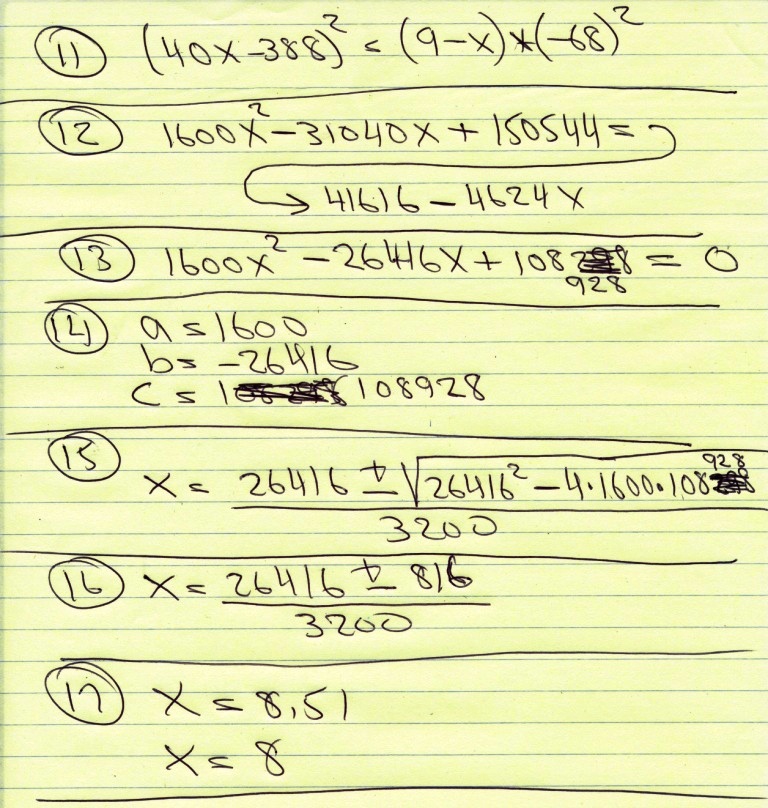 11 (40x-388)² = (9-x)*(-68)²
12 1600x²-31040x+150544=
→ 41616-4624x
13 1600x²-26416x+108 8 = 0
928
14 a=1600
b=-26416
c=1 108928
15
928
x= 26416±√26416²-4·1600·108
3200
16 x= 26416±816
3200
17 x=8,51
x=8